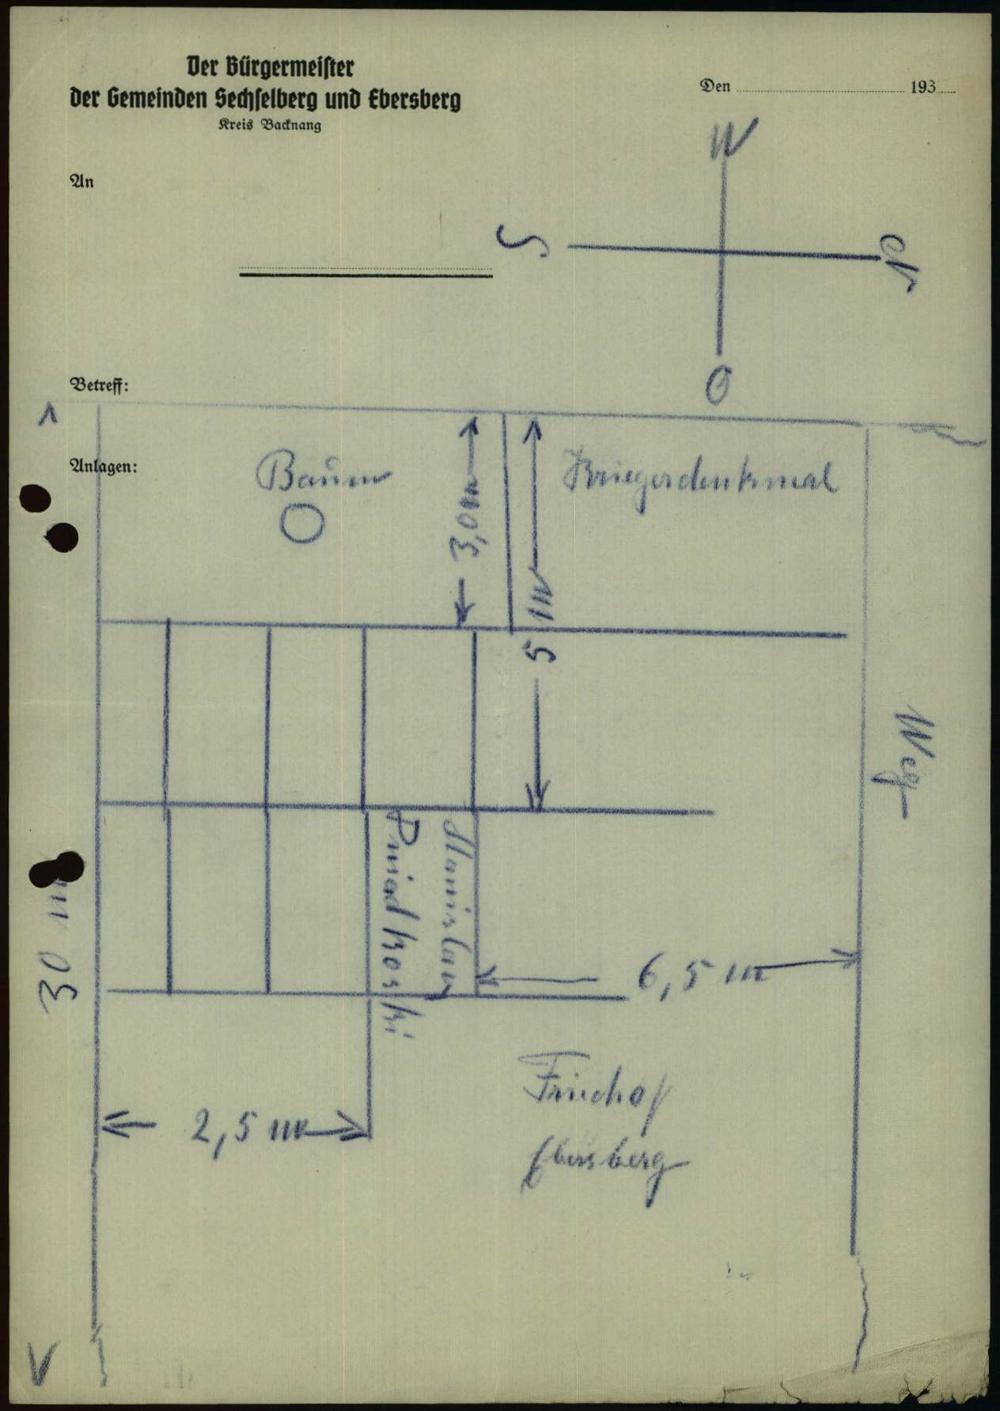 Der Bürgermeister
der Gemeinden Sechselberg und Ebersberg
Kreis Backnang
Den 193
An
W
S
N
O
Betreff:
Anlagen:
Baum
Kriegerdenkmal
3,0 m
5 m
Weg
Stanislav
Pniadkoski
30 m
6,5 m
2,5 m
Friedhof
Ebersberg